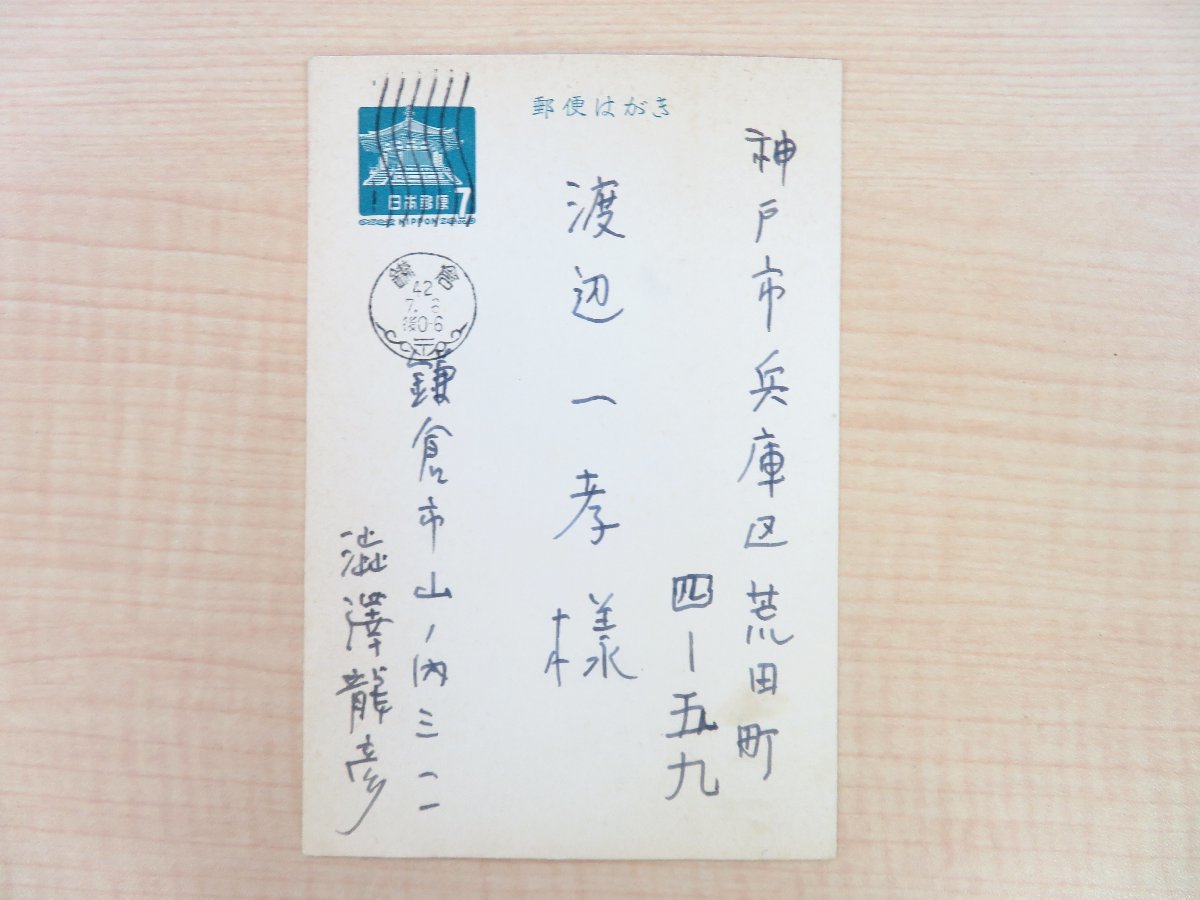 郵便はがき
神戸市兵庫区荒田町
四ー五九
渡辺一孝様
日本郵便 7
NIPPON
鎌倉
42
7.
後0-6
鎌倉市山ノ内三一一
澁澤龍彦